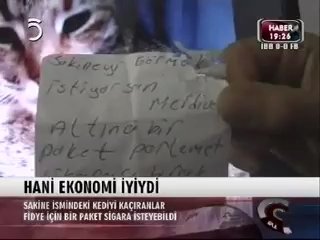 5
HABER
19:26
İBB 0-0 FB
Sakineyi Görmek
istiyorsan
Merdiven
Altına bir
paket parlement
HANİ EKONOMİ İYİYDİ
SAKİNE İSMİNDEKİ KEDİYİ KAÇIRANLAR
FİDYE İÇİN BİR PAKET SİGARA İSTEYEBİLDİ